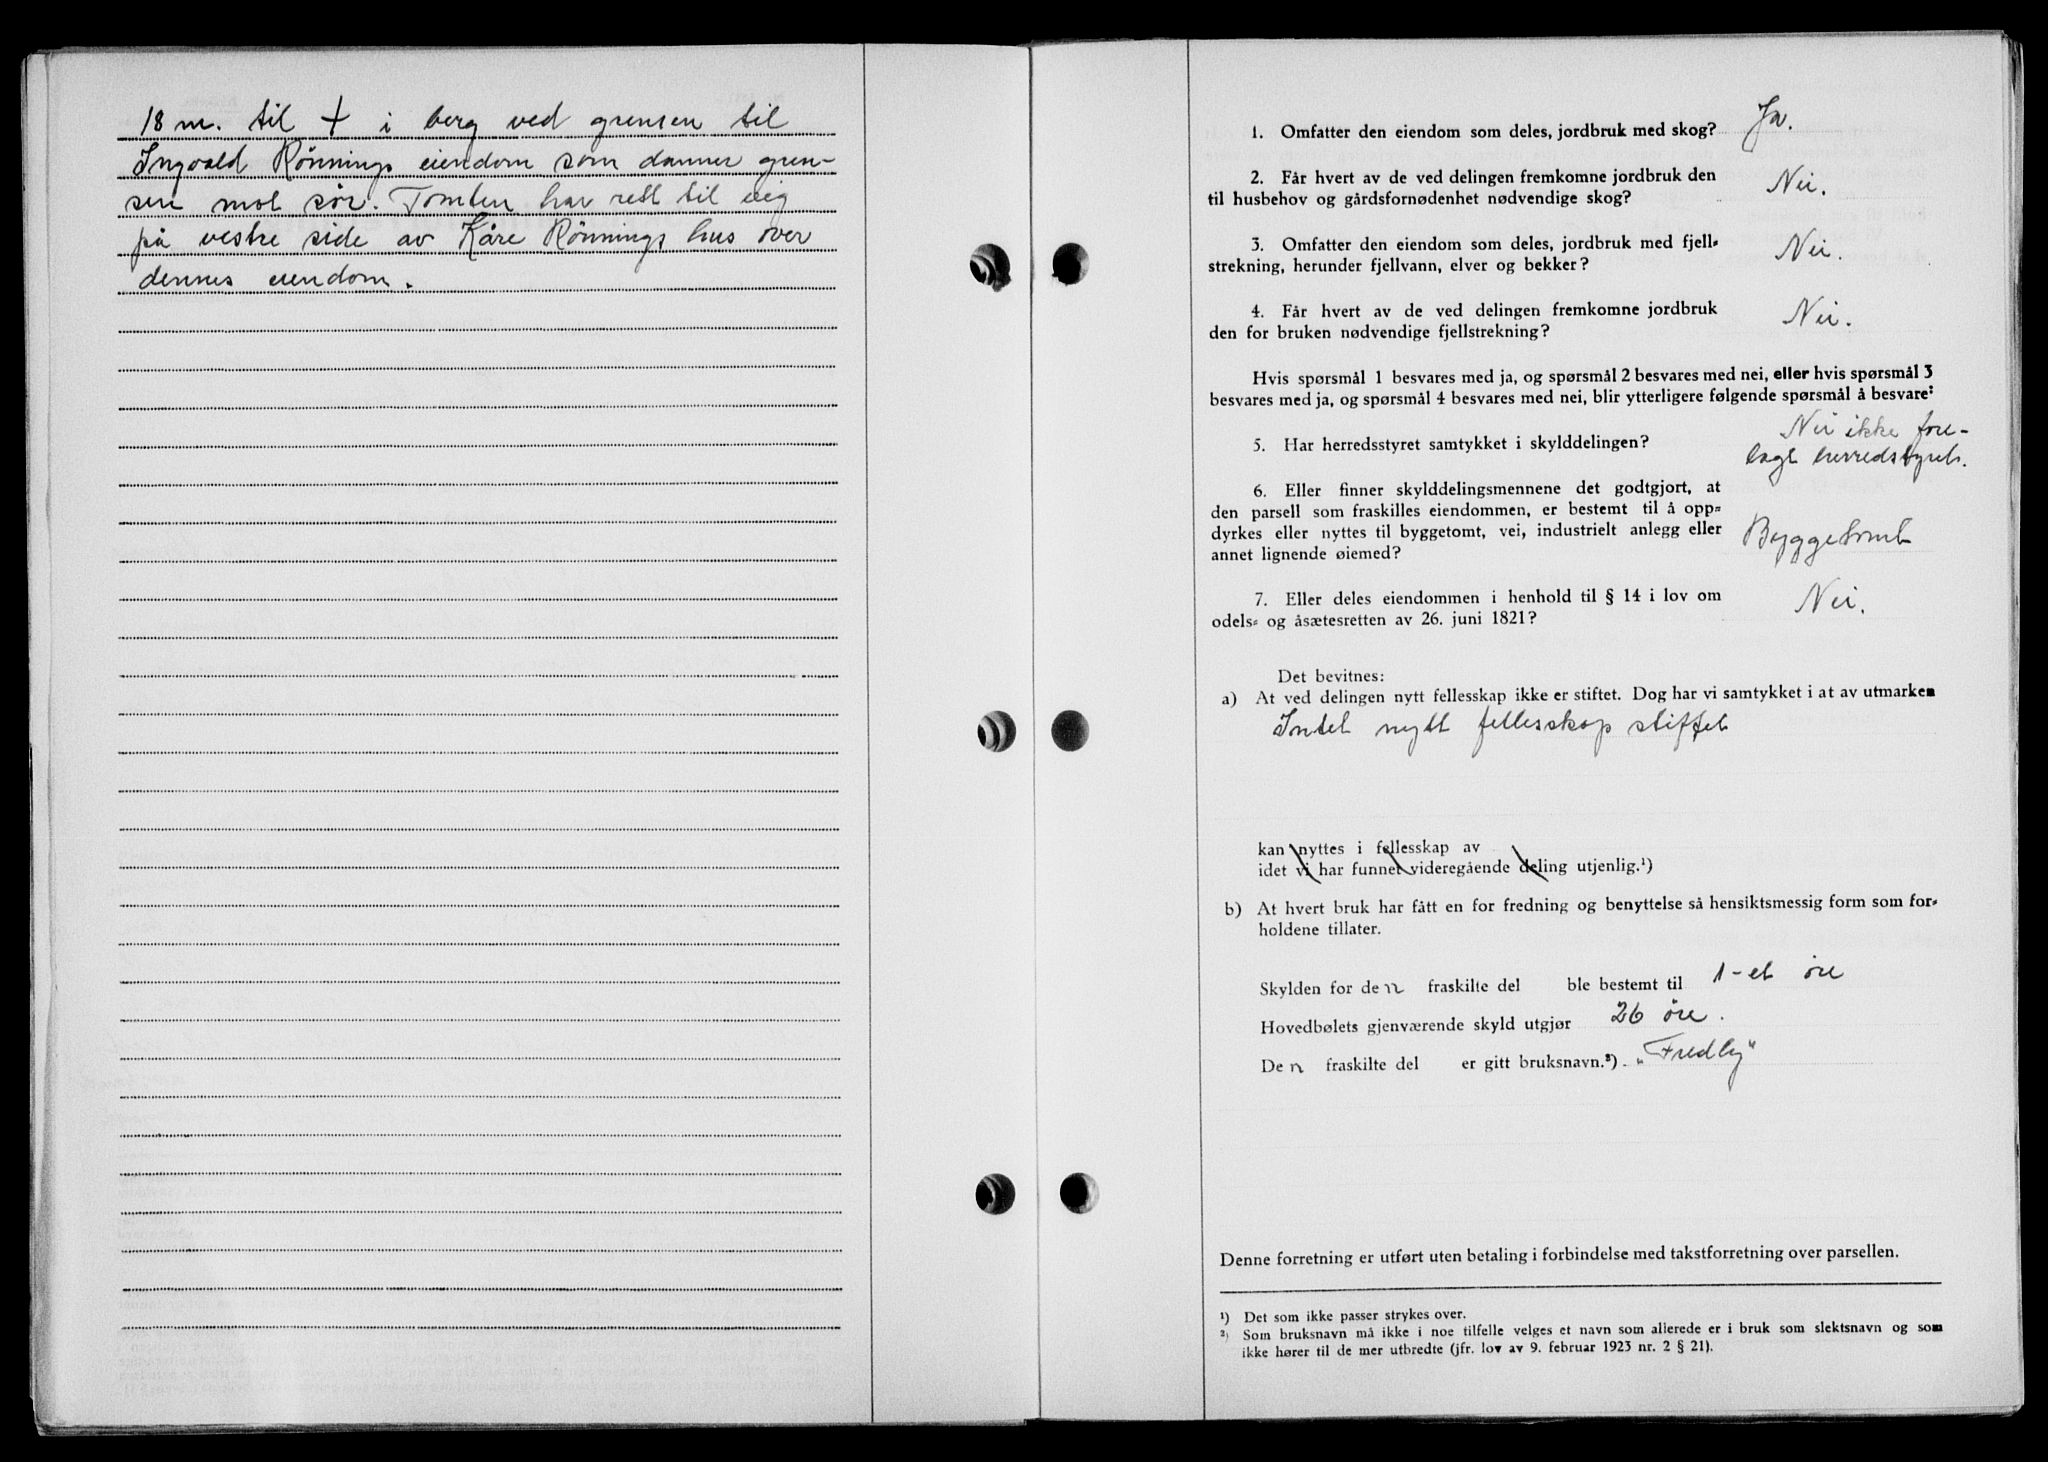 18 m. til + i berg ved grensen til
Ingvald Rønnings eiendom som danner gren-
sen mot sør. Tomten har rett til vei
på vestre side av Kåre Rønnings hus over
dennes eiendom.
1. Omfatter den eiendom som deles, jordbruk med skog? Ja.
2. Får hvert av de ved delingen fremkomne jordbruk den
til husbehov og gårdsfornødenhet nødvendige skog? Nei.
3. Omfatter den eiendom som deles, jordbruk med fjell=
strekning, herunder fjellvann, elver og bekker? Nei.
4. Får hvert av de ved delingen fremkomne jordbruk
den for bruken nødvendige fjellstrekning? Nei.
Hvis spørsmål 1 besvares med ja, og spørsmål 2 besvares med nei, eller hvis spørsmål 3
besvares med ja, og spørsmål 4 besvares med nei, blir ytterligere følgende spørsmål å besvare:
5. Har herredsstyret samtykket i skylddelingen? Nei ikke fore-
lagt herredstyret.
6. Eller finner skylddelingsmennene det godtgjort, at
den parsell som fraskilles eiendommen, er bestemt til å opp=
dyrkes eller nyttes til byggetomt, vei, industrielt anlegg eller
annet lignende øiemed? Byggetomt
7. Eller deles eiendommen i henhold til § 14 i lov om
odels= og åsætesretten av 26. juni 1821? Nei.
Det bevitnes:
a) At ved delingen nytt fellesskap ikke er stiftet. Dog har vi samtykket i at av utmarken
Intet nytt fellesskap stiftet
kan nyttes i fellesskap av
idet vi har funnet videregående deling utjenlig.¹)
b) At hvert bruk har fått en for fredning og benyttelse så hensiktsmessig form som for=
holdene tillater.
Skylden for den fraskilte del ble bestemt til 1 - et øre
Hovedbølets gjenværende skyld utgjør 26 øre.
Den fraskilte del er gitt bruksnavn.²). "Fredly"
Denne forretning er utført uten betaling i forbindelse med takstforretning over parsellen.
¹) Det som ikke passer strykes over.
²) Som bruksnavn må ikke i noe tilfelle velges et navn som allerede er i bruk som slektsnavn og som
ikke hører til de mer utbredte (jfr. lov av 9. februar 1923 nr. 2 § 21).